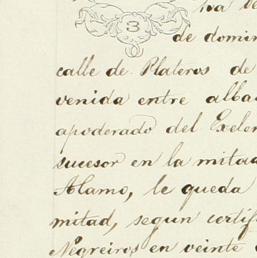 3
de domin
calle de Plateros de
venida entre alba
apoderado del Excelen
sucesor en la mitad
Alamo, le queda
mitad, segun certif
Negreiros en veinte